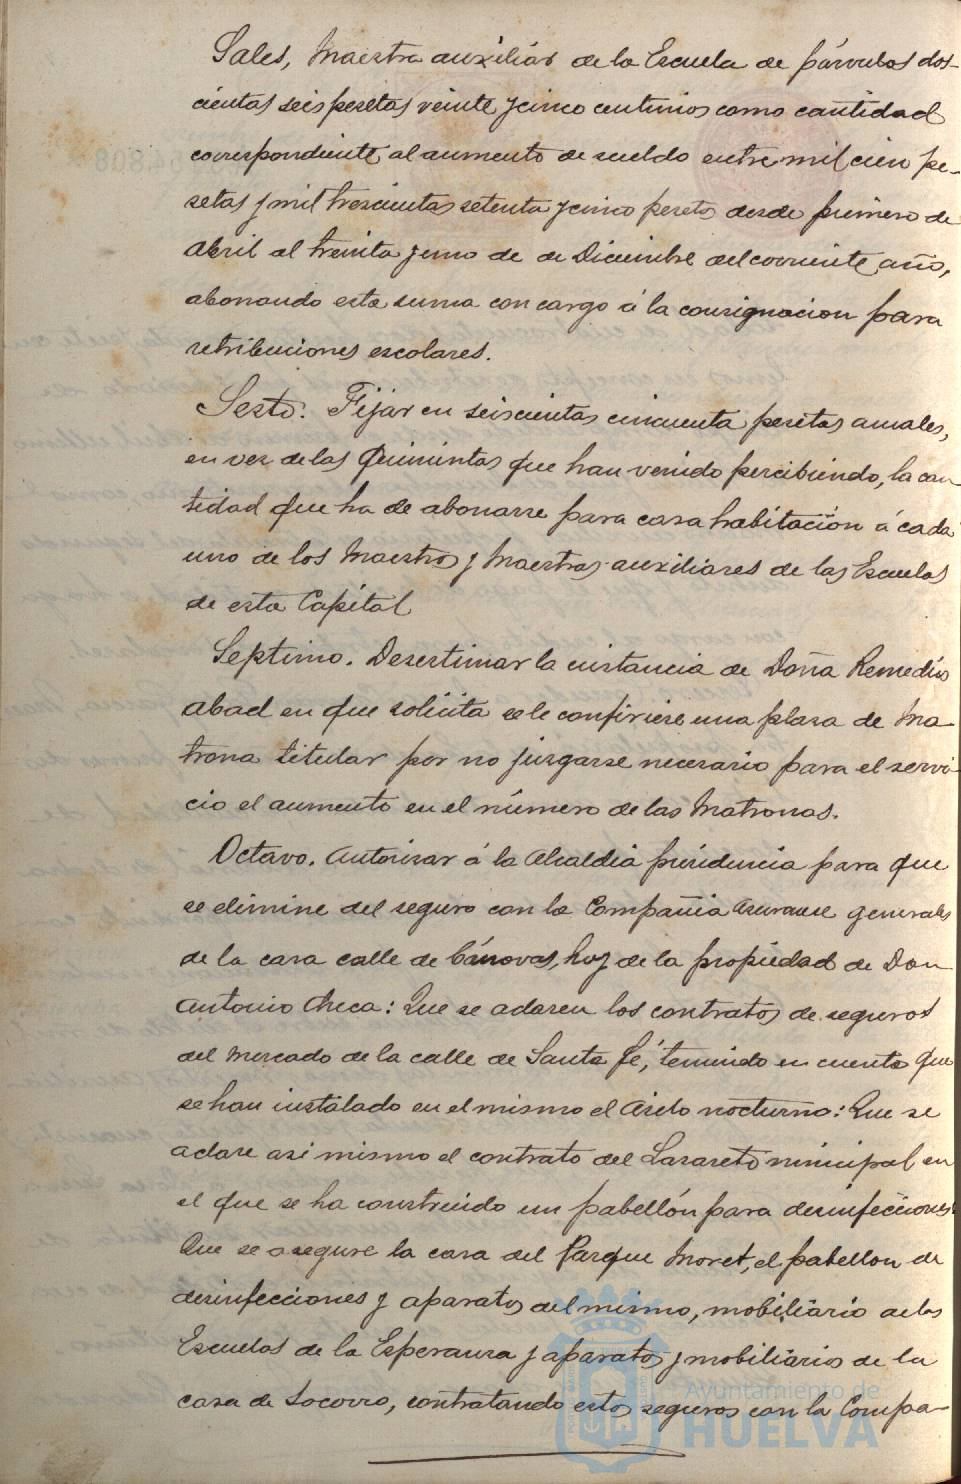 Sales, Maestra auxiliar de la Escuela de párvulos dos-
cientas seis pesetas veinte y cinco centimos como cantidad
correspondiente al aumento de sueldo entre mil cien pe-
setas y mil trescientas setenta y cinco pesetas desde primero de
Abril al treinta y uno de de Diciembre del corriente año,
abonando esta suma con cargo á la consignacion para
retribuciones escolares.
Sesto. Fijar en seiscientas cincuenta pesetas anuales,
en vez de las Quinintas que han venido percibiendo, la can
tidad que ha de abonarse para casa habitación á cada
uno de los Maestros y Maestras auxiliares de las Escuelas
de esta Capital
Septimo. Desestimar la instancia de Doña Remedios
Abad en que solicita se le confiriese una plaza de Ma-
trona titular por no juzgarse necesario para el servi-
cio el aumento en el número de las Matronas.
Octavo. Autorizar á la Alcaldia presidencia para que
se elimine del seguro con la Compañia generales
de la casa calle de Cánovas, hoy de la propiedad de Don
Antonio Checa: Que se aclaren los contratos de seguros
del Mercado de la calle de Santa Fé, teniendo en cuenta que
se han instalado en el mismo el Asilo nocturno: Que se
aclare asi mismo el contrato del Lazareto minicipal en
el que se ha construido un pabellón para desinfecciones:
Que se asegure la casa del Parque Moret, el pabellon de
desinfecciones y aparatos del mismo, mobiliario de las
Escuelas de la Esperanza y aparatos y mobiliarios de la
casa de Socorro, contratando estos seguros con la Compa-
Ayuntamiento de
HUELVA